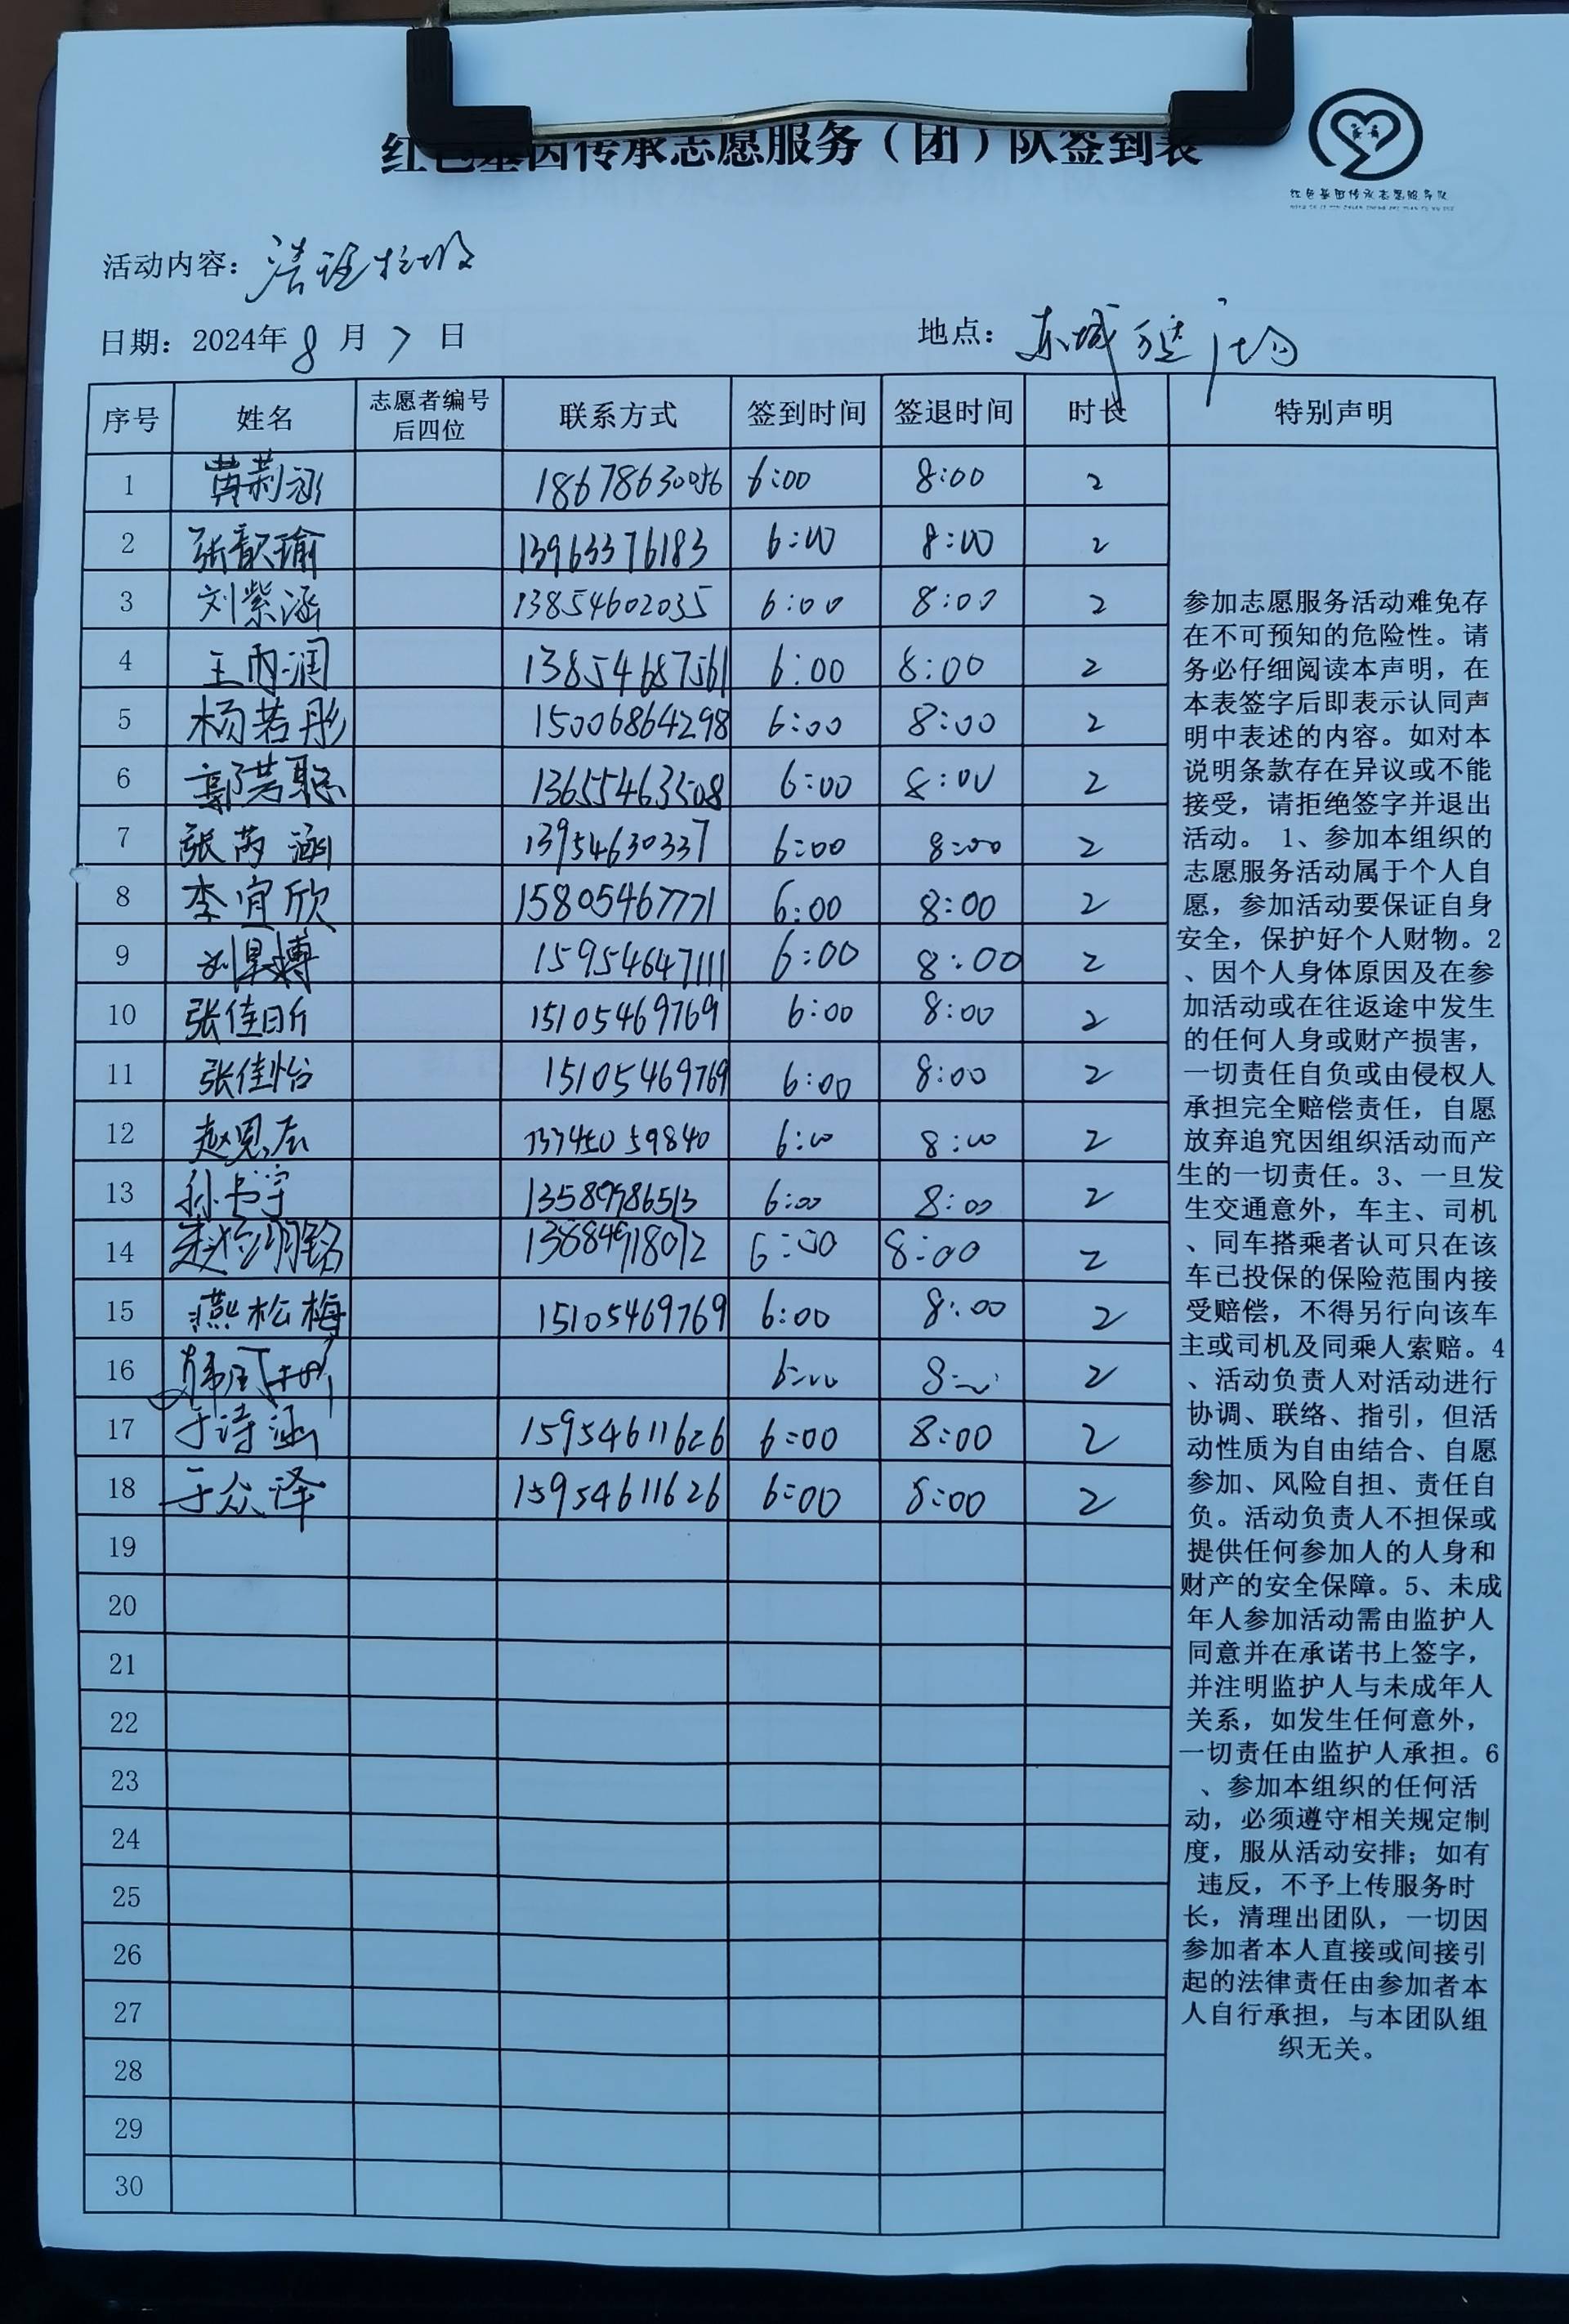 红色基因传承志愿服务（团）队签到表
红色基因传承志愿服务队
活动内容：清理垃圾
日期：2024年8月7日 地点：东城 广场
序号 姓名 志愿者编号后四位 联系方式 签到时间 签退时间 时长 特别声明
1 黄莉涵 18678630056 6:00 8:00 2
2 张歆瑜 13963376183 6:00 8:00 2
3 刘紫涵 13854602035 6:00 8:00 2
4 王雨润 13854687561 6:00 8:00 2
5 杨若彤 15006864298 6:00 8:00 2
6 郭芸聪 13655463508 6:00 8:00 2
7 张芮涵 13954630337 6:00 8:00 2
8 李宜欣 15805467771 6:00 8:00 2
9 刘昊博 15954647111 6:00 8:00 2
10 张佳昕 15105469769 6:00 8:00 2
11 张佳怡 15105469769 6:00 8:00 2
12 赵思辰 6:00 8:00 2
13 孙书宇 13589986513 6:00 8:00 2
14 6:00 8:00 2
15 燕松梅 15105469769 6:00 8:00 2
16 6:00 8:00 2
17 于诗涵 15954611626 6:00 8:00 2
18 于众泽 15954611626 6:00 8:00 2
19
20
21
22
23
24
25
26
27
28
29
30
参加志愿服务活动难免存
在不可预知的危险性。请
务必仔细阅读本声明，在
本表签字后即表示认同声
明中表述的内容。如对本
说明条款存在异议或不能
接受，请拒绝签字并退出
活动。 1、参加本组织的
志愿服务活动属于个人自
愿，参加活动要保证自身
安全，保护好个人财物。2
、因个人身体原因及在参
加活动或在往返途中发生
的任何人身或财产损害，
一切责任自负或由侵权人
承担完全赔偿责任，自愿
放弃追究因组织活动而产
生的一切责任。3、一旦发
生交通意外，车主、司机
、同车搭乘者认可只在该
车已投保的保险范围内接
受赔偿，不得另行向该车
主或司机及同乘人索赔。4
、活动负责人对活动进行
协调、联络、指引，但活
动性质为自由结合、自愿
参加、风险自担、责任自
负。活动负责人不担保或
提供任何参加人的人身和
财产的安全保障。5、未成
年人参加活动需由监护人
同意并在承诺书上签字，
并注明监护人与未成年人
关系，如发生任何意外，
一切责任由监护人承担。6
、参加本组织的任何活
动，必须遵守相关规定制
度，服从活动安排；如有
违反，不予上传服务时
长，清理出团队，一切因
参加者本人直接或间接引
起的法律责任由参加者本
人自行承担，与本团队组
织无关。